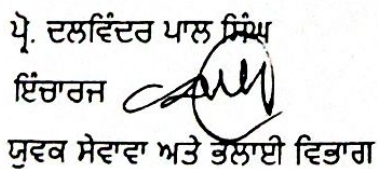 ਪ੍ਰੋ. ਦਲਵਿੰਦਰ ਪਾਲ ਸਿੰਘ
ਇੰਚਾਰਜ
ਯੁਵਕ ਸੇਵਾਵਾ ਅਤੇ ਭਲਾਈ ਵਿਭਾਗ